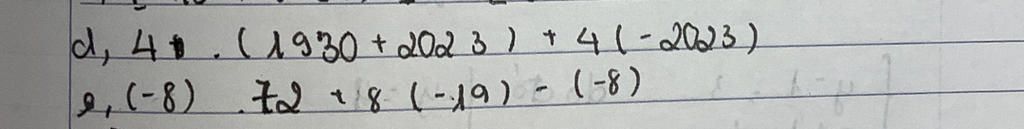 d, 4 . (1930 + 2023) + 4 (-2023)
e, (-8) . 72 + 8 (-19) - (-8)